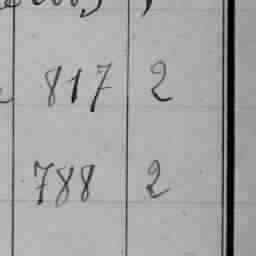 817 2
788 2